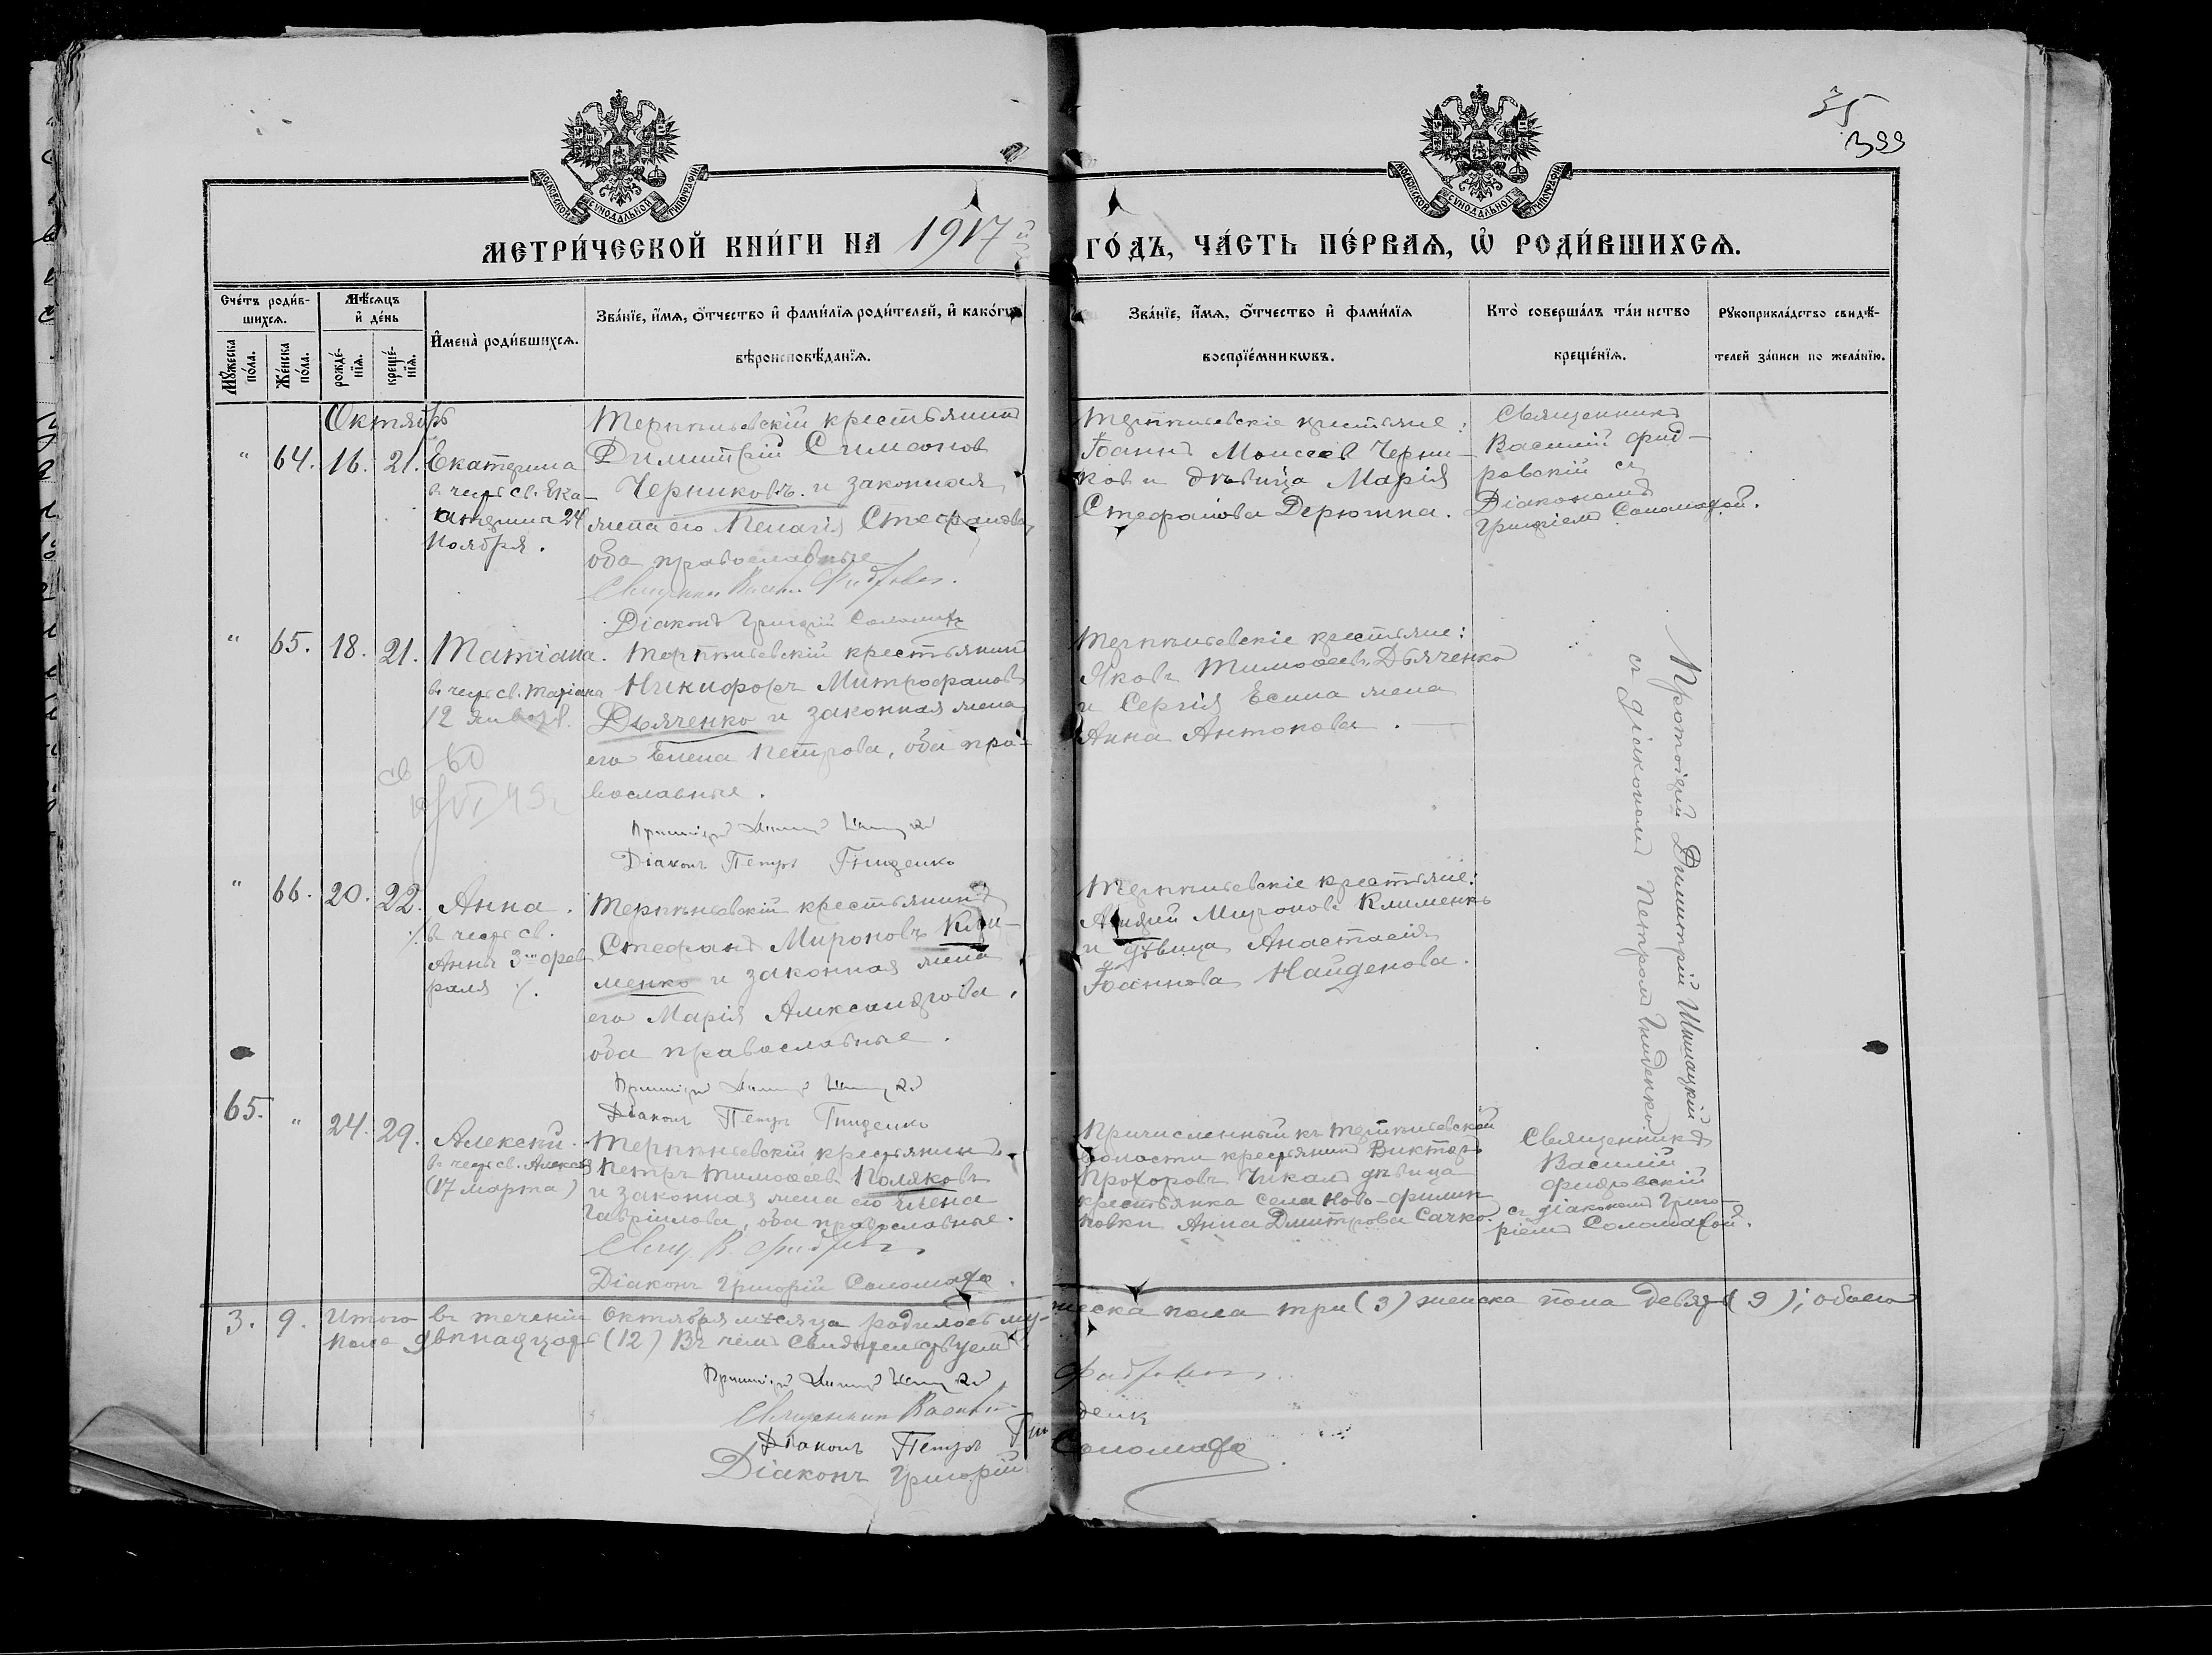 35
399
МОСКОВСКОЙ СѴНОДАЛЬНОЙ ТИПОГРАФІИ
МОСКОВСКОЙ СѴНОДАЛЬНОЙ ТИПОГРАФІИ
МЕТРИ́ЧЕСКОЙ КНИ́ГИ НА 1917 й
ГО́ДЪ, ЧА́СТЬ ПЕ́РВАѦ, Ѡ҆ РОДИ́ВШИХСѦ.
Сче́тъ роди́в-
шихсѧ.
Мѣ́сѧцъ
и҆ де́нь
И҆мена̀ роди́вшихсѧ.
Зва́нїе, и҆́мѧ, ѻ҆́тчество и҆ фами́лїѧ роди́телей, и҆ како́гѡ
вѣроисповѣ́данїѧ.
Мꙋ́жеска по́ла.
Же́нска по́ла.
рожде́-
нїѧ.
креще́-
нїѧ.
Зва́нїе, и҆́мѧ, ѻ҆́тчество и҆ фами́лїѧ
воспрїе́мникѡвъ.
Кто̀ соверша́лъ та́инство
креще́нїѧ.
Рꙋкоприкла́дство свидѣ́-
телей за́писи по жела́нїю.
Октябрь
" 64. 16. 21. Екатерина
въ честь св. Ека-
терины 24
Ноября.
Терпѣніевскій крестьянинъ
Димитрій Симеонов
Черниковъ и законная
жена его Пелагія Стефанова,
оба православные
Діаконъ Григорій Соломаха
Терпѣніевскіе крестьяне:
Іоаннъ Моисеев Черни-
ков и дѣвица Марія
Стефанова Дерюгина.
Священникъ
Василій Фид-
ровскій съ
Діакономъ
Григоріемъ Соломахой.
" 65. 18. 21. Татіана.
въ честь св. Татіаны
12 января.
Терпѣніевскій крестьянинъ
Никифоръ Митрофановъ
Дьяченко и законная жена
его Елена Петрова, оба пра-
вославные.
Діаконъ Петръ Гниденко
Терпѣніевскіе крестьяне:
Яковъ Тимоѳеевъ Дьяченко
и Сергія Есина жена
Анна Антонова.
Протоіерей Димитрій Шишацкій
съ діакономъ Петромъ Гниденко
" 66. 20. 22. Анна.
въ честь св.
Анны 3го фев-
раля
Терпѣніевскій крестьянинъ
Стефанъ Мироновъ Кли-
менко и законная жена
его Марія Александрова,
оба православные.
Діаконъ Петръ Гниденко
Терпѣніевскіе крестьяне:
Андрей Мироновъ Клименко
и дѣвица Анастасія
Іоаннова Найденова.
65. " 24. 29. Алексій.
въ честь св. Алексія
(17 марта)
Терпѣніевскій крестьянинъ
Петръ Тимоѳеевъ Поляковъ
и законная жена его Елена
Гавріилова, оба православные.
Діаконъ Григорій Соломаха.
Причисленный къ Терпѣніевской
волости крестьянинъ Викторъ
Прохоровъ Чикалъ дѣвица
крестьянка села Ново-Филип-
повки Анна Дмитрова Сачко.
Священникъ
Василій
Фидровскій
съ діакономъ Григо-
ріемъ Соломахой.
3. 9. Итого въ теченіи Октября мѣсяца родилось му-жеска пола три (3) женска пола девять (9); обоего
пола двѣнадцать (12) Въ чёмъ свидѣтельствуемъ
Священник Василій Фидровскій
Діаконъ Петръ Гниденко
Діаконъ Григорій Соломаха